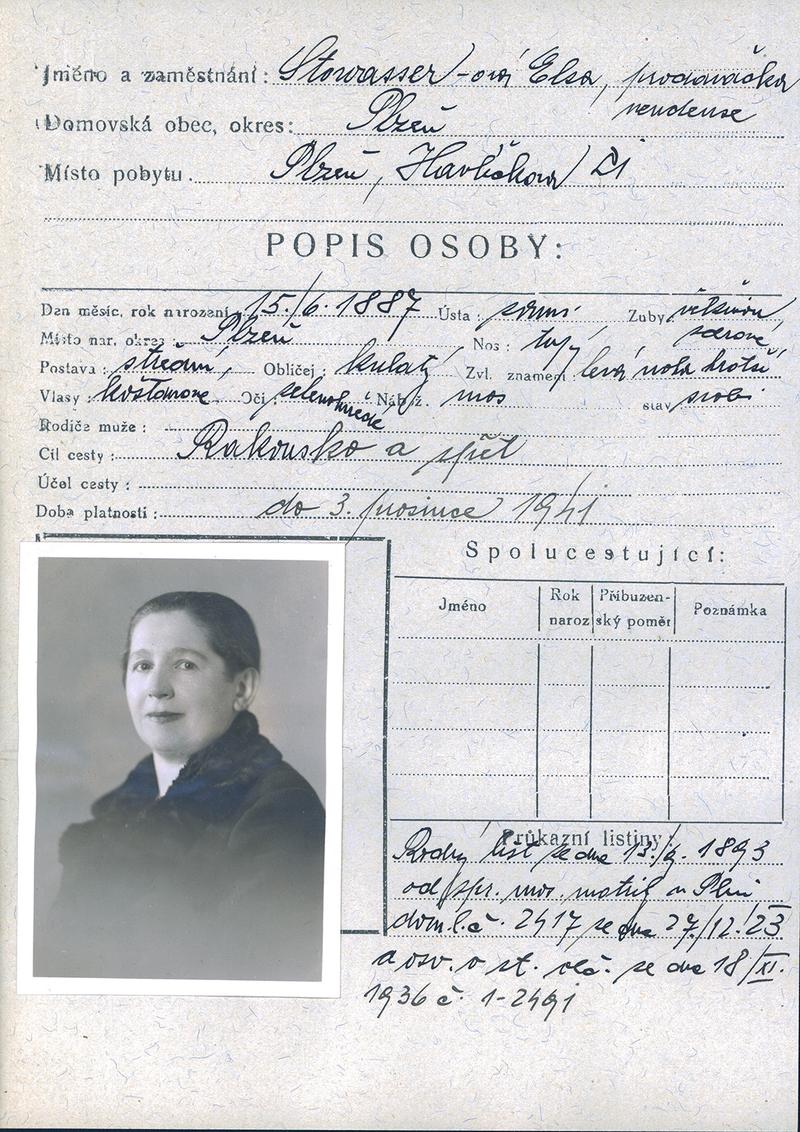 Jméno a zaměstnání: Stowasser-ová Elsa, prodavačka
vendeuse
Domovská obec, okres: Plzeň
Místo pobytu Plzeň, Havlíčkova 21
POPIS OSOBY:
Den měsíc, rok narození 15./6. 1887 Ústa: Zuby většinou
Místo nar, okres Plzeň Nos: tupý zdravé
Postava: střední, Obličej: kulatý Zvl. znamení levá noha kratší
Vlasy kaštanové Oči zelenohnědé Nábož. mos stav svob.
Rodiče muže:
Cíl cesty: Rakousko a zpět
Účel cesty:
Doba platnosti: do 3. prosince 1941
Spolucestující:
Jméno Rok naroz Příbuzenský poměr Poznámka
Průkazní listiny:
Rodný list ze dne 1893
od spr. mos. matrik v Plzni
dom. l. č. 2417 ze dne 27./12. 23
a osv. o st. obč. ze dne 18/XI.
1936 č. 1-2491